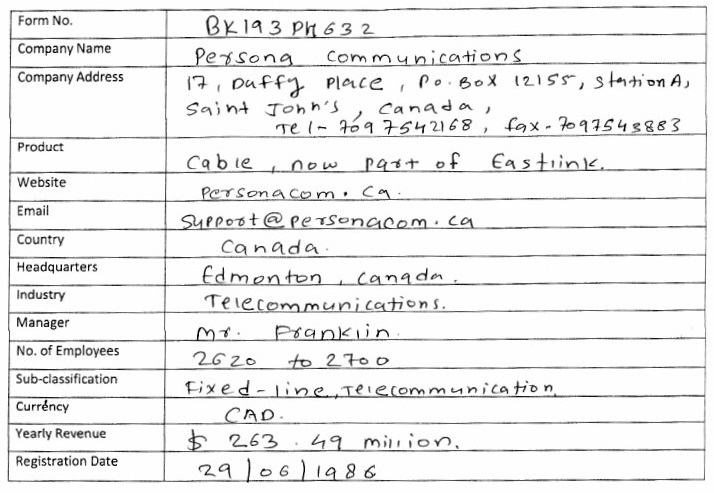 Form No. BK193PH632
Company Name Persona Communications
Company Address 17, Duffy Place, Po. Box 12155, Station A,
Saint John's, Canada,
Tel- 709 7542168, fax- 7097543883
Product Cable, now part of Eastlink.
Website personacom.ca.
Email support@personacom.ca
Country Canada.
Headquarters Edmonton, Canada.
Industry Telecommunications.
Manager Mr. Franklin.
No. of Employees 2620 to 2700
Sub-classification Fixed-line, Telecommunication,
Currency CAD.
Yearly Revenue $ 263.49 million.
Registration Date 29/06/1986